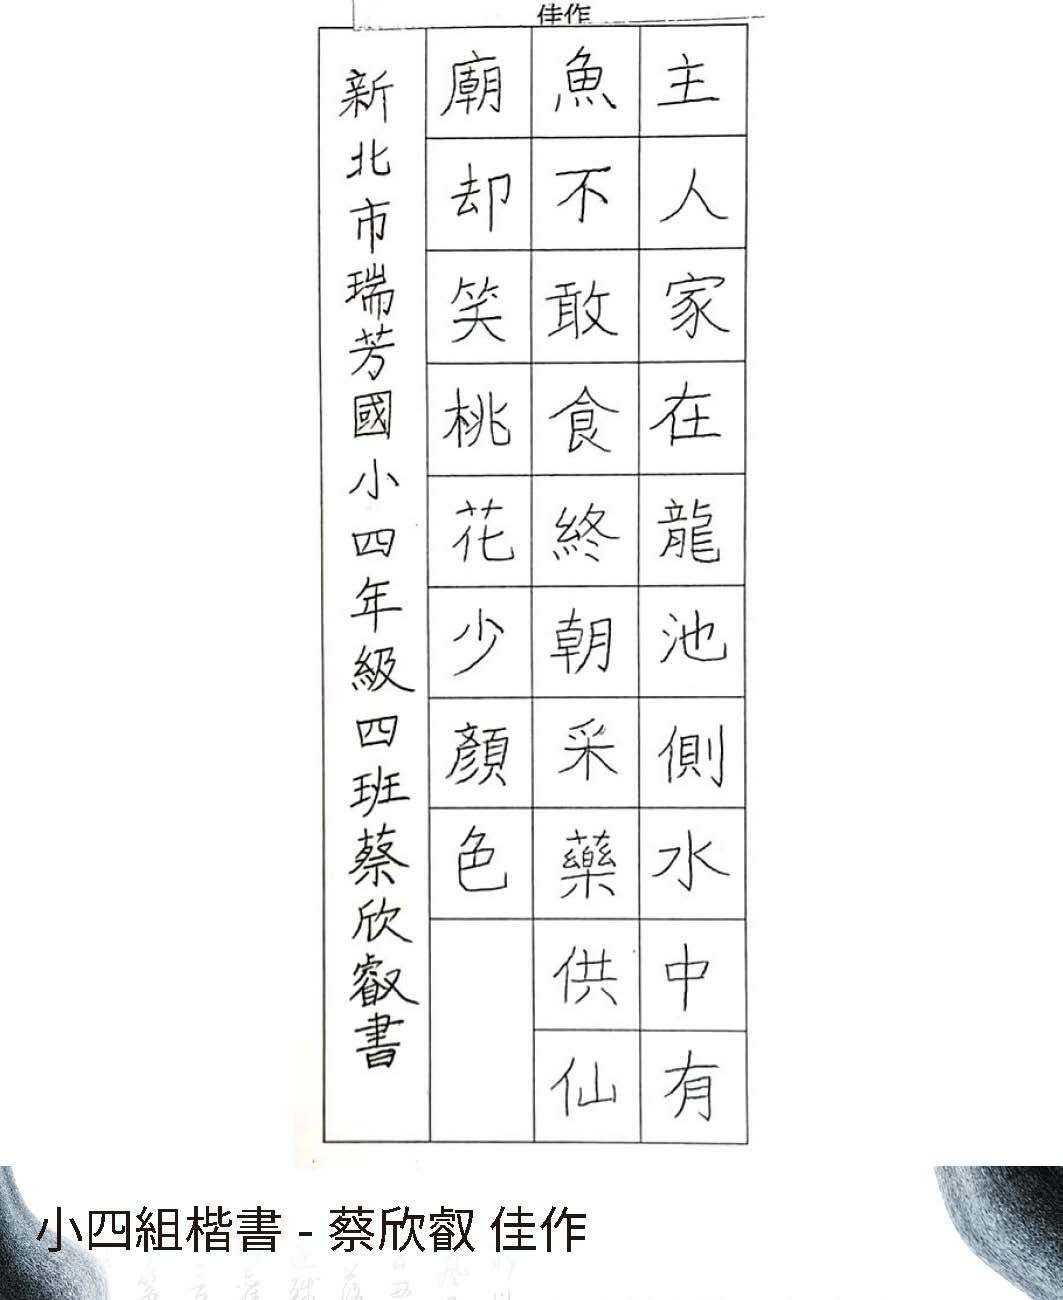 佳作
主人家在龍池側水中有
魚不敢食終朝采藥供仙
廟却笑桃花少顏色
新北市瑞芳國小四年級四班蔡欣叡書
小四組楷書 - 蔡欣叡 佳作